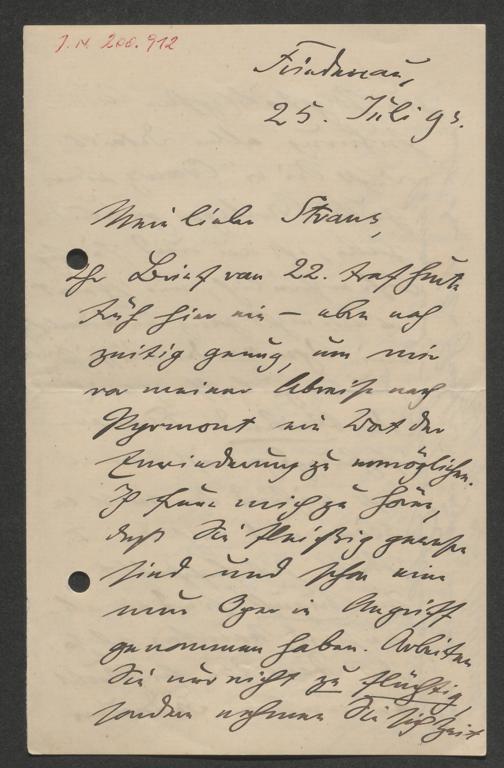 J. N. 200.912
Friedenau,
25. Juli 93.
Mein lieber Straus,
Ihr Brief vom 22. traf heute
früh hier ein – aber noch
zeitig genug, um mir
vor meiner Abreise nach
Pyrmont ein Wort der
Erwiederung zu ermöglichen.
Ich freue mich zu hören,
daß Sie fleißig gewesen
sind und schon eine
neue Oper in Angriff
genommen haben. Arbeiten
Sie nur nicht zu flüchtig,
sondern nehmen Sie sich Zeit